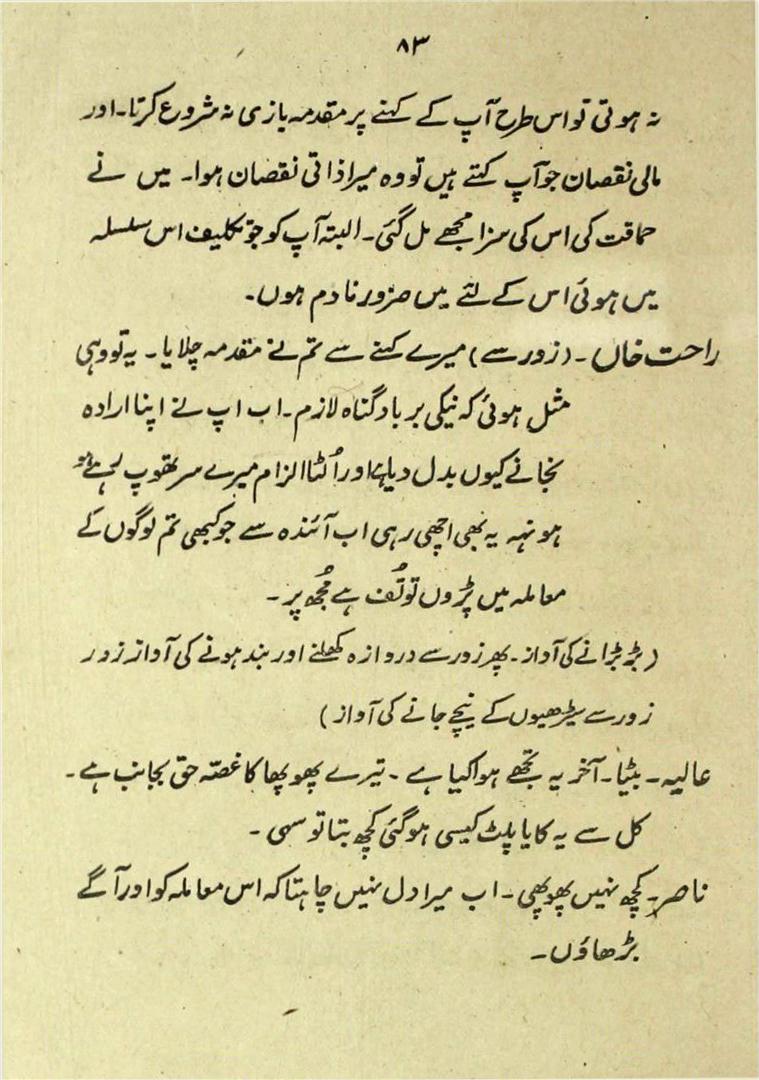 ۸۳
نہ ہوتی تو اس طرح آپ کے کہنے پر مقدمہ بازی نہ شروع کرتا۔ اور
مالی نقصان جو آپ کہتے ہیں تو وہ میرا ذاتی نقصان ہوا۔ میں نے
حماقت کی اس کی سزا مجھے مل گئی۔ البتہ آپ کو جو تکلیف اس سلسلہ
میں ہوئی اس کے لئے میں ضرور نادم ہوں۔
راحت خاں۔ (زور سے) میرے کہنے سے تم نے مقدمہ چلایا۔ یہ تو وہی
مثل ہوئی کہ نیکی برباد گناہ لازم۔ اب اپ نے اپنا ارادہ
نجانے کیوں بدل دیا ہے اور اُلٹا الزام میرے سر تھوپ رہے ہو
ہونہہ یہ بھی اچھی رہی اب آئندہ سے جو کبھی تم لوگوں کے
معاملہ میں پڑوں تو تُف ہے مُجھ پر۔
(بڑبڑانے کی آواز۔ پھر زور سے دروازہ کھلنے اور بند ہونے کی آواز زور
زور سے سیڑھیوں کے نیچے جانے کی آواز)
عالیہ۔ بیٹا۔ آخر یہ تجھے ہوا کیا ہے۔ تیرے پھوپھا کا غصّہ حق بجانب ہے۔
کل سے یہ کایا پلٹ کیسی ہوگئی کچھ بتا تو سہی۔
ناصر۔ کچھ نہیں پھوپھی۔ اب میرا دل نہیں چاہتا کہ اس معاملہ کو اور آگے
بڑھاؤں۔